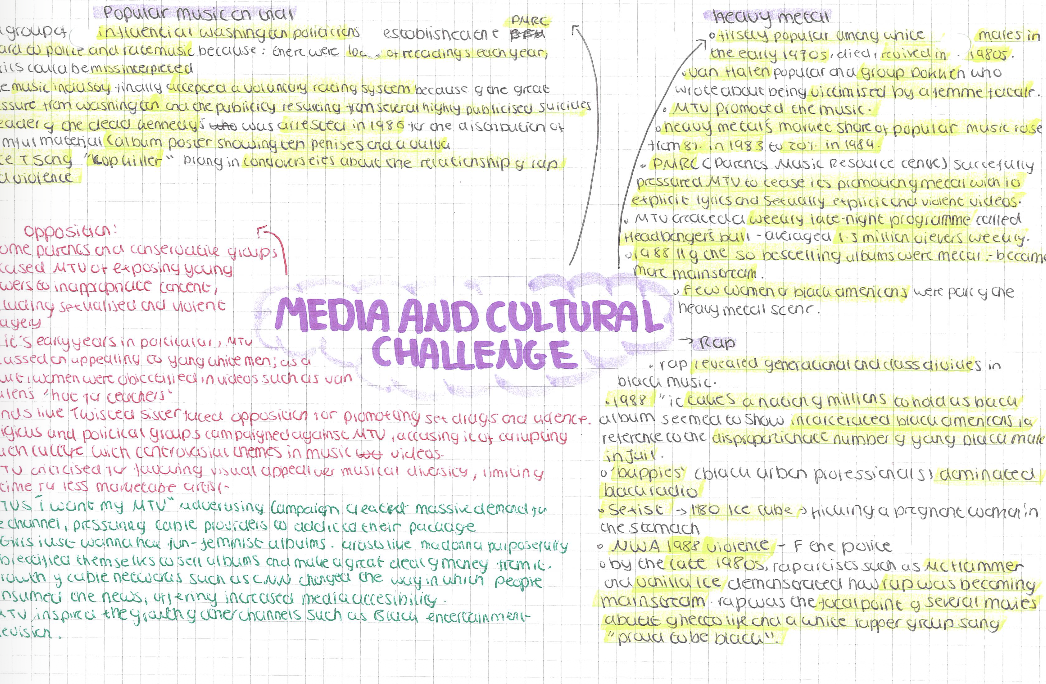 Popular music on trial
a group of influential washington politicians established the PMRC
and to police and rate music because: there were of recordings each year,
could be missinterpreted
e music industry finally accepted a voluntary rating system because of the great
ssure from washington and the publicity resulting from several highly publicised suicides
eader of the dead kennedy's was arrested in 1986 for the distribution of
mful material (album poster showing ten penises and a vulva
ce T song "cop killer" bring in controversies about the relationship of rap
d violence
opposition:
ome parents and conservative groups
cused MTV of exposing young
wers to inappropriate content,
cluding sexualised and violent
agery
it's early years in particular, MTV
ussed on appealing to young white men; as a
ult women were objectified in videos such as van
alens "hot for teacher"
nds like Twisted Sister faced opposition for promoting sex drugs and violence.
igious and political groups campaigned against MTV, accusing it of corrupting
uth culture with controversial themes in music videos.
TV criticised for favouring visual appeal over musical diversity, limiting
rtime for less marketable artist-
TVs "I want my MTV" advertising campaign created massive demand for
e channel, pressuring cable providers to add it to their package
Girls just wanna have fun - feminist albums. artists like madonna purposefully
objectified themselves to sell albums and make a great deal of money from it.
rowth of cable networks such as CNN changed the way in which people
nsumed the news, offering increased media accesibility.
TV inspired the growth of other channels such as Black entertainment
levision.
MEDIA AND CULTURAL
CHALLENGE
Heavy metal
firstly popular among white males in
the early 1970s, died, revived in 1980s.
Van Halen popular and group Dokken who
wrote about being victimised by a femme fatale.
MTV promoted the music.
heavy metal's market share of popular music rose
from 8% in 1983 to 20% in 1984.
PMRC (Parents Music Resource centre) succesfully
pressured MTV to cease its promoting metal with its
explicit lyrics and sexually explicit and violent videos.
MTV created a weekly late-night programme called
Headbangers ball - averaged 1.3 million viewers weekly.
1988 11 of the 50 bestselling albums were metal - became
more mainstream.
Few women of black americans were part of the
heavy metal scene.
→ Rap
rap revealed generational and class divides in
black music.
1988 "it takes a nation of millions to hold us back"
album seemed to show incarcerated black americans in
reference to the disproportionate number of young black male
in jail.
'buppies' (black urban professionals) dominated
black radio
Sexist → 1980 Ice cube → kicking a pregnant woman in
the stomach
NWA 1988 violence - F the police
by the late 1980s, rap artists such as MC Hammer
and vanilla ice demonstrated how rap was becoming
mainstream. rap was the focal point of several movies
about ghetto life and a white rapper group sang
"proud to be black".